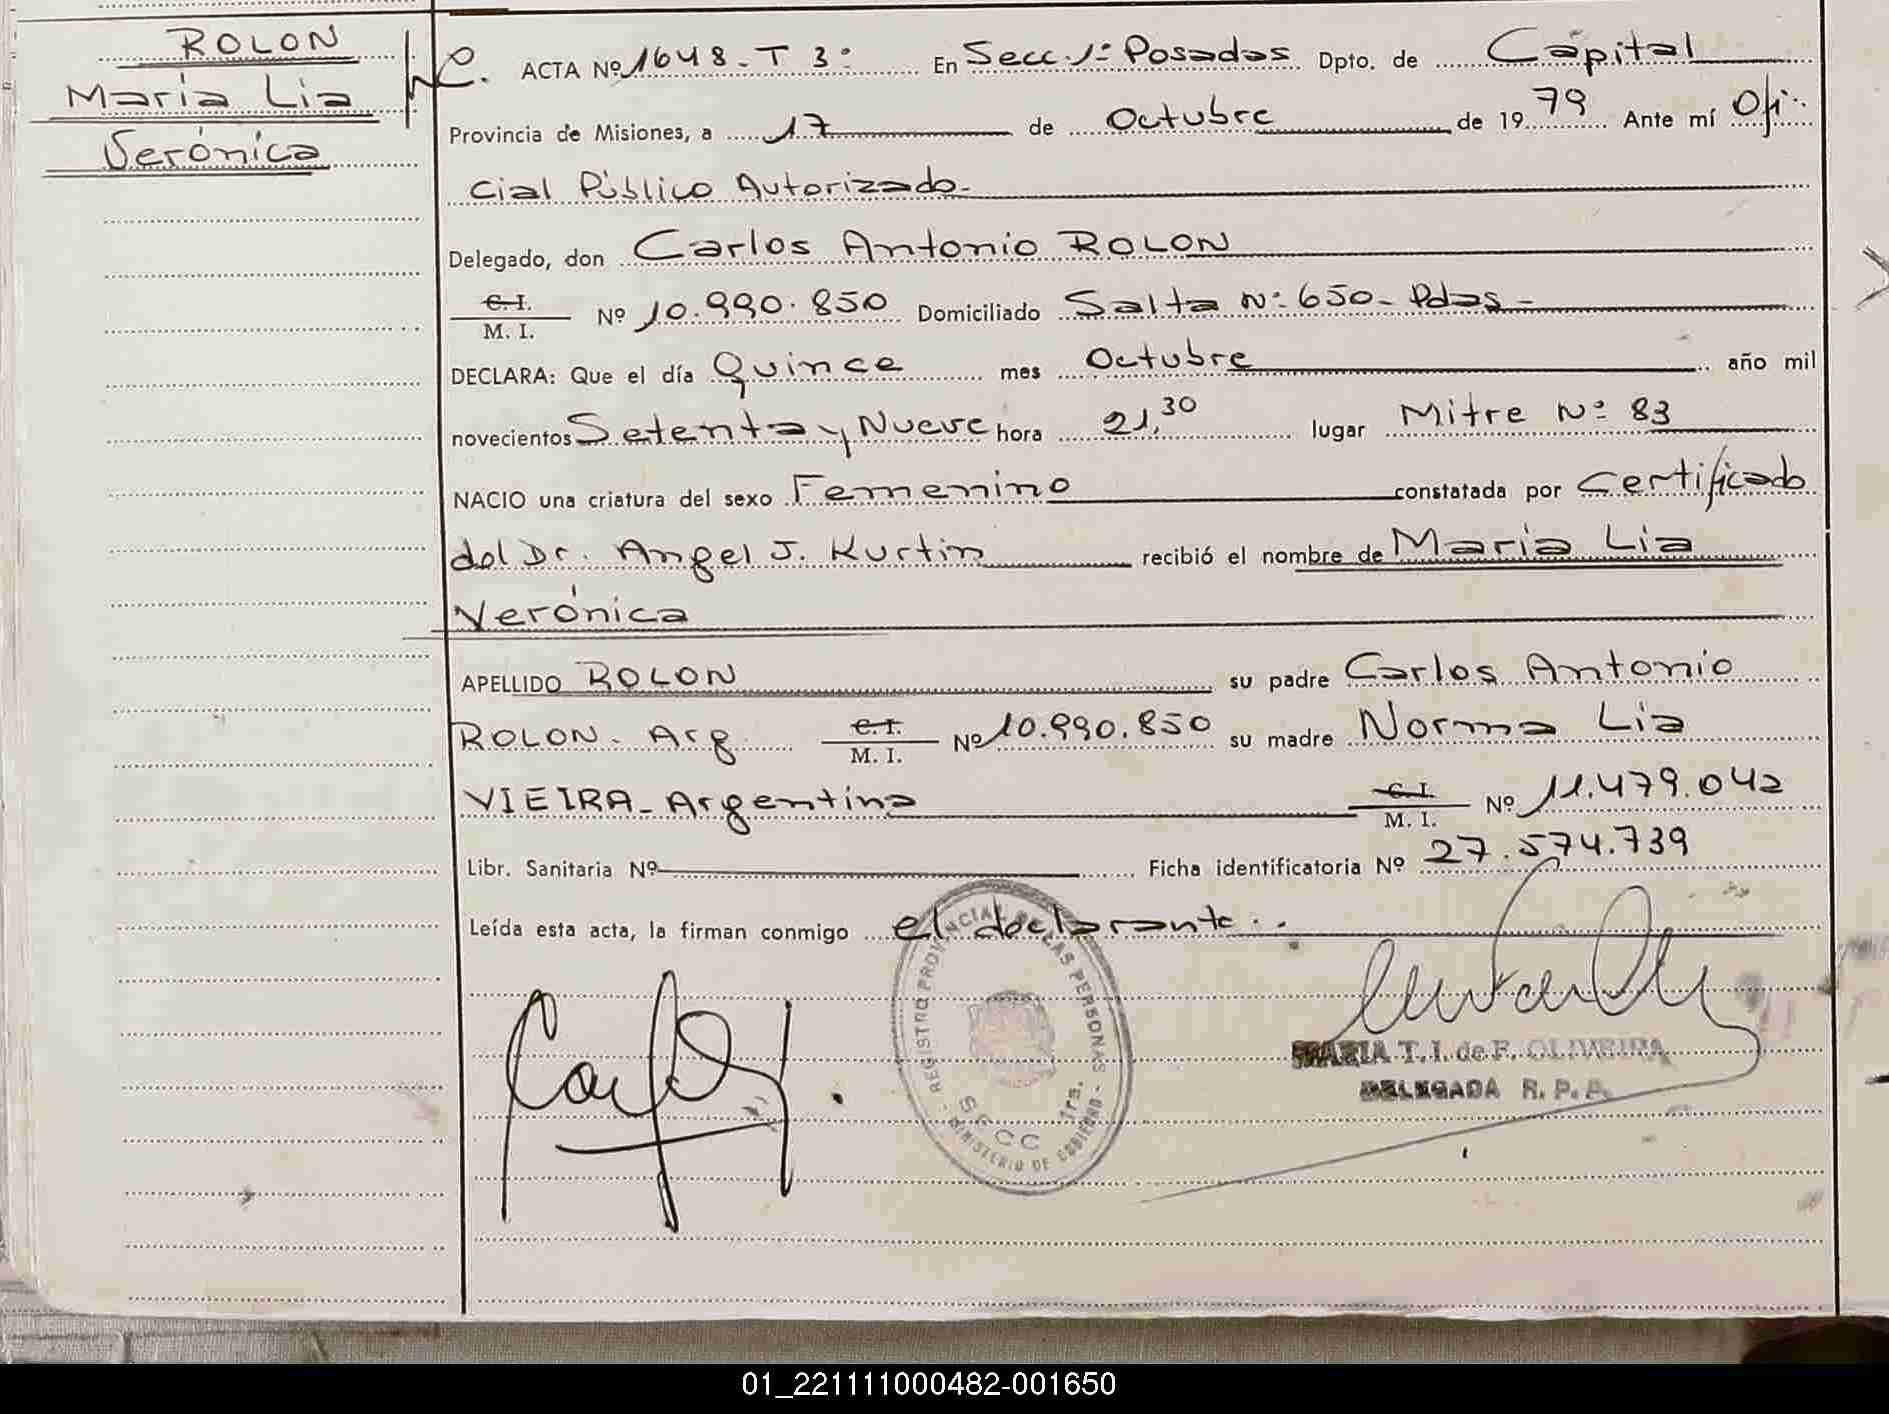 ROLON
Maria Lia
Verónica
ACTA Nº 1648 - T 3º En Secc. 1º Posadas Dpto. de Capital
Provincia de Misiones, a 17 de Octubre de 1979 Ante mí Ofi-
cial Público Autorizado-
Delegado, don Carlos Antonio ROLON
C.I. / M. I. Nº 10.990.850 Domiciliado Salta Nº 650 - Pdas -
DECLARA: Que el día Quince mes Octubre año mil
novecientos Setenta y Nueve hora 21,30 lugar Mitre Nº 83
NACIO una criatura del sexo Femenino constatada por Certificado
del Dr. Angel J. Kurtin recibió el nombre de Maria Lia
Verónica
APELLIDO ROLON su padre Carlos Antonio
ROLON - Arg C.I. / M. I. Nº 10.990.850 su madre Norma Lia
VIEIRA - Argentina C.I. / M. I. Nº 11.479.042
Libr. Sanitaria Nº Ficha identificatoria Nº 27.574.739
Leída esta acta, la firman conmigo el declarante..
REGISTRO PROVINCIAL DE LAS PERSONAS - MINISTERIO DE GOBIERNO -
SECC 1ra.
MARIA T. I. de F. OLIVEIRA
DELEGADA R. P. P.
01_221111000482-001650